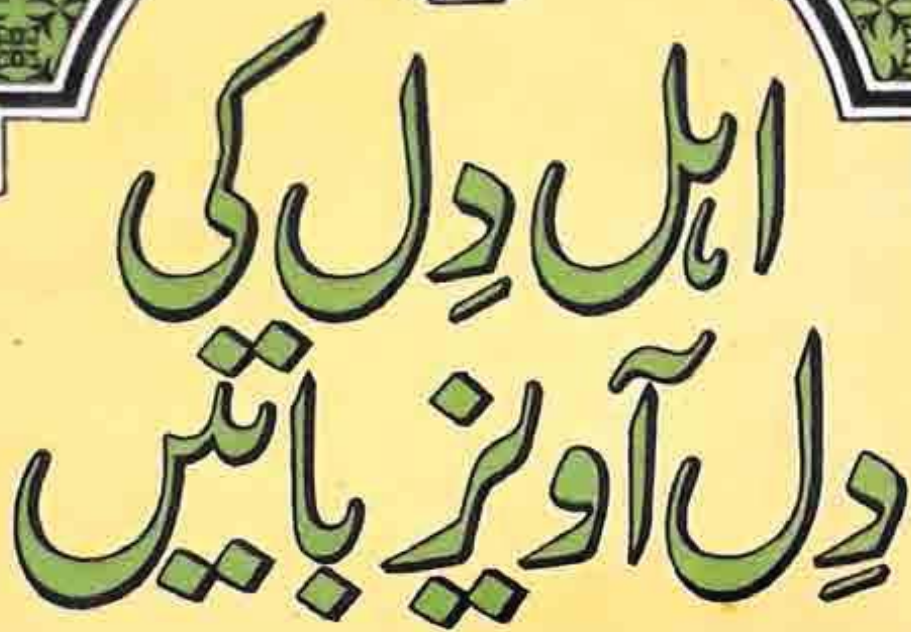 اہل دِل کی
دِل آویز باتیں